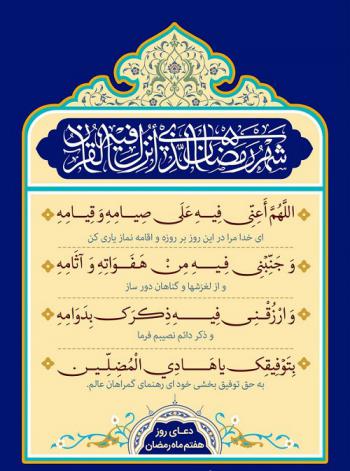 شهر رمضان الذی أنزل فیه القرآن
اللَّهُمَّ أَعِنِّی فِیهِ عَلَی صِیامِهِ وَ قِیامِهِ
ای خدا مرا در این روز بر روزه و اقامه نماز یاری کن
وَ جَنِّبْنِی فِیهِ مِنْ هَفَوَاتِهِ وَ آثَامِهِ
و از لغزشها و گناهان دور ساز
وَ ارْزُقْنِی فِیهِ ذِکْرَکَ بِدَوَامِهِ
و ذکر دائم نصیبم فرما
بِتَوْفِیقِکَ یا هَادِیَ الْمُضِلِّینَ
به حق توفیق بخشی خود ای رهنمای گمراهان عالم.
دعای روز
هفتم ماه رمضان